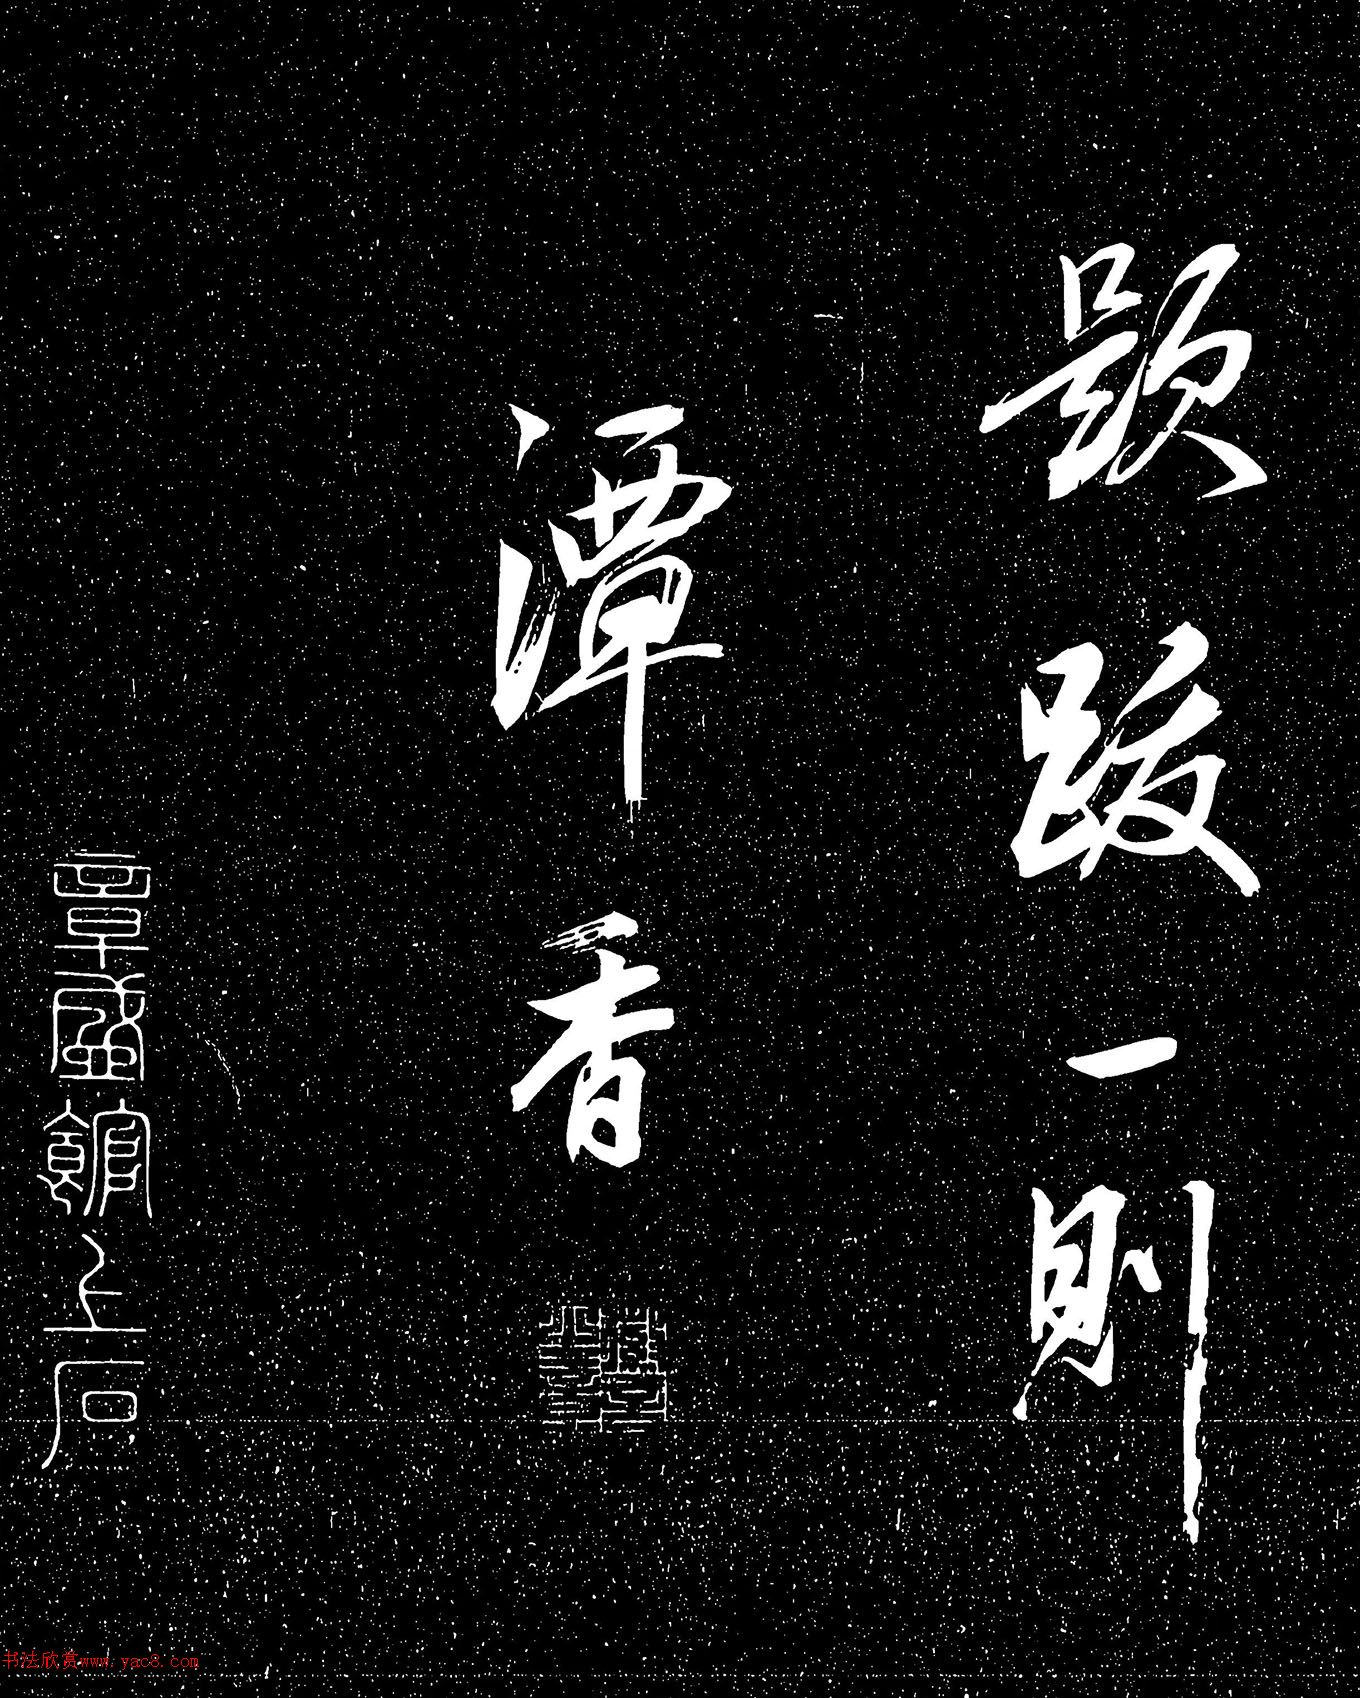 題跋一則
潭香
章盛館上石
书法欣赏www.yac8.com